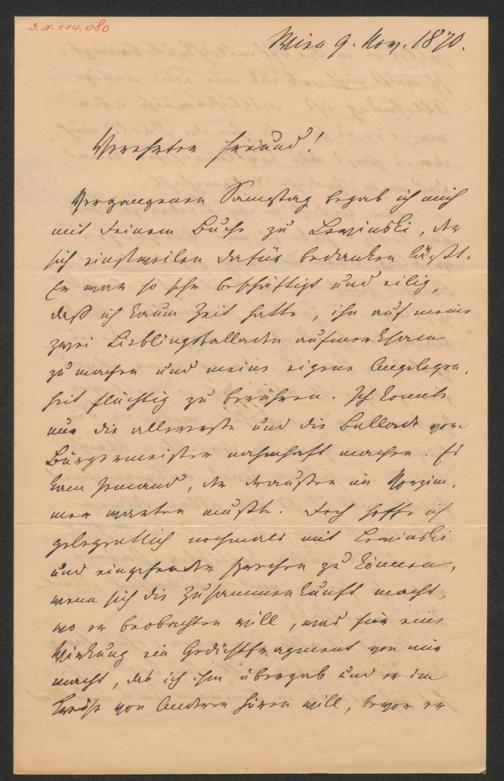 J.N. 114.080
Wien 9. Nov. 1870.
Verehrter Freund!
Vergangenen Samstag begab ich mich
mit Deinem Buche zu Lewinski, der
sich einstweilen dafür bedanken läßt.
Er war so sehr beschäftigt und eilig,
daß ich kaum Zeit hatte, ihn auf meine
zwei Lieblingsballaden aufmerksam
zu machen und meine eigene Angelegen-
heit flüchtig zu berühren. Ich konnte
nur die allererste und die Ballade vom
Bürgermeister nahmhaft machen. Es
kam Jemand, der draußen im Vorzim-
mer warten mußte. Doch hoffe ich
gelegentlich nochmals mit Lewinski
und eingehender sprechen zu können,
wenn sich die Zusammenkunft macht,
wo er beobachten will, was für eine
Wirkung ein Gedichtfragment von mir
macht, das ich ihm übergab und er im
Kreise von Anderen hören will, bevor er